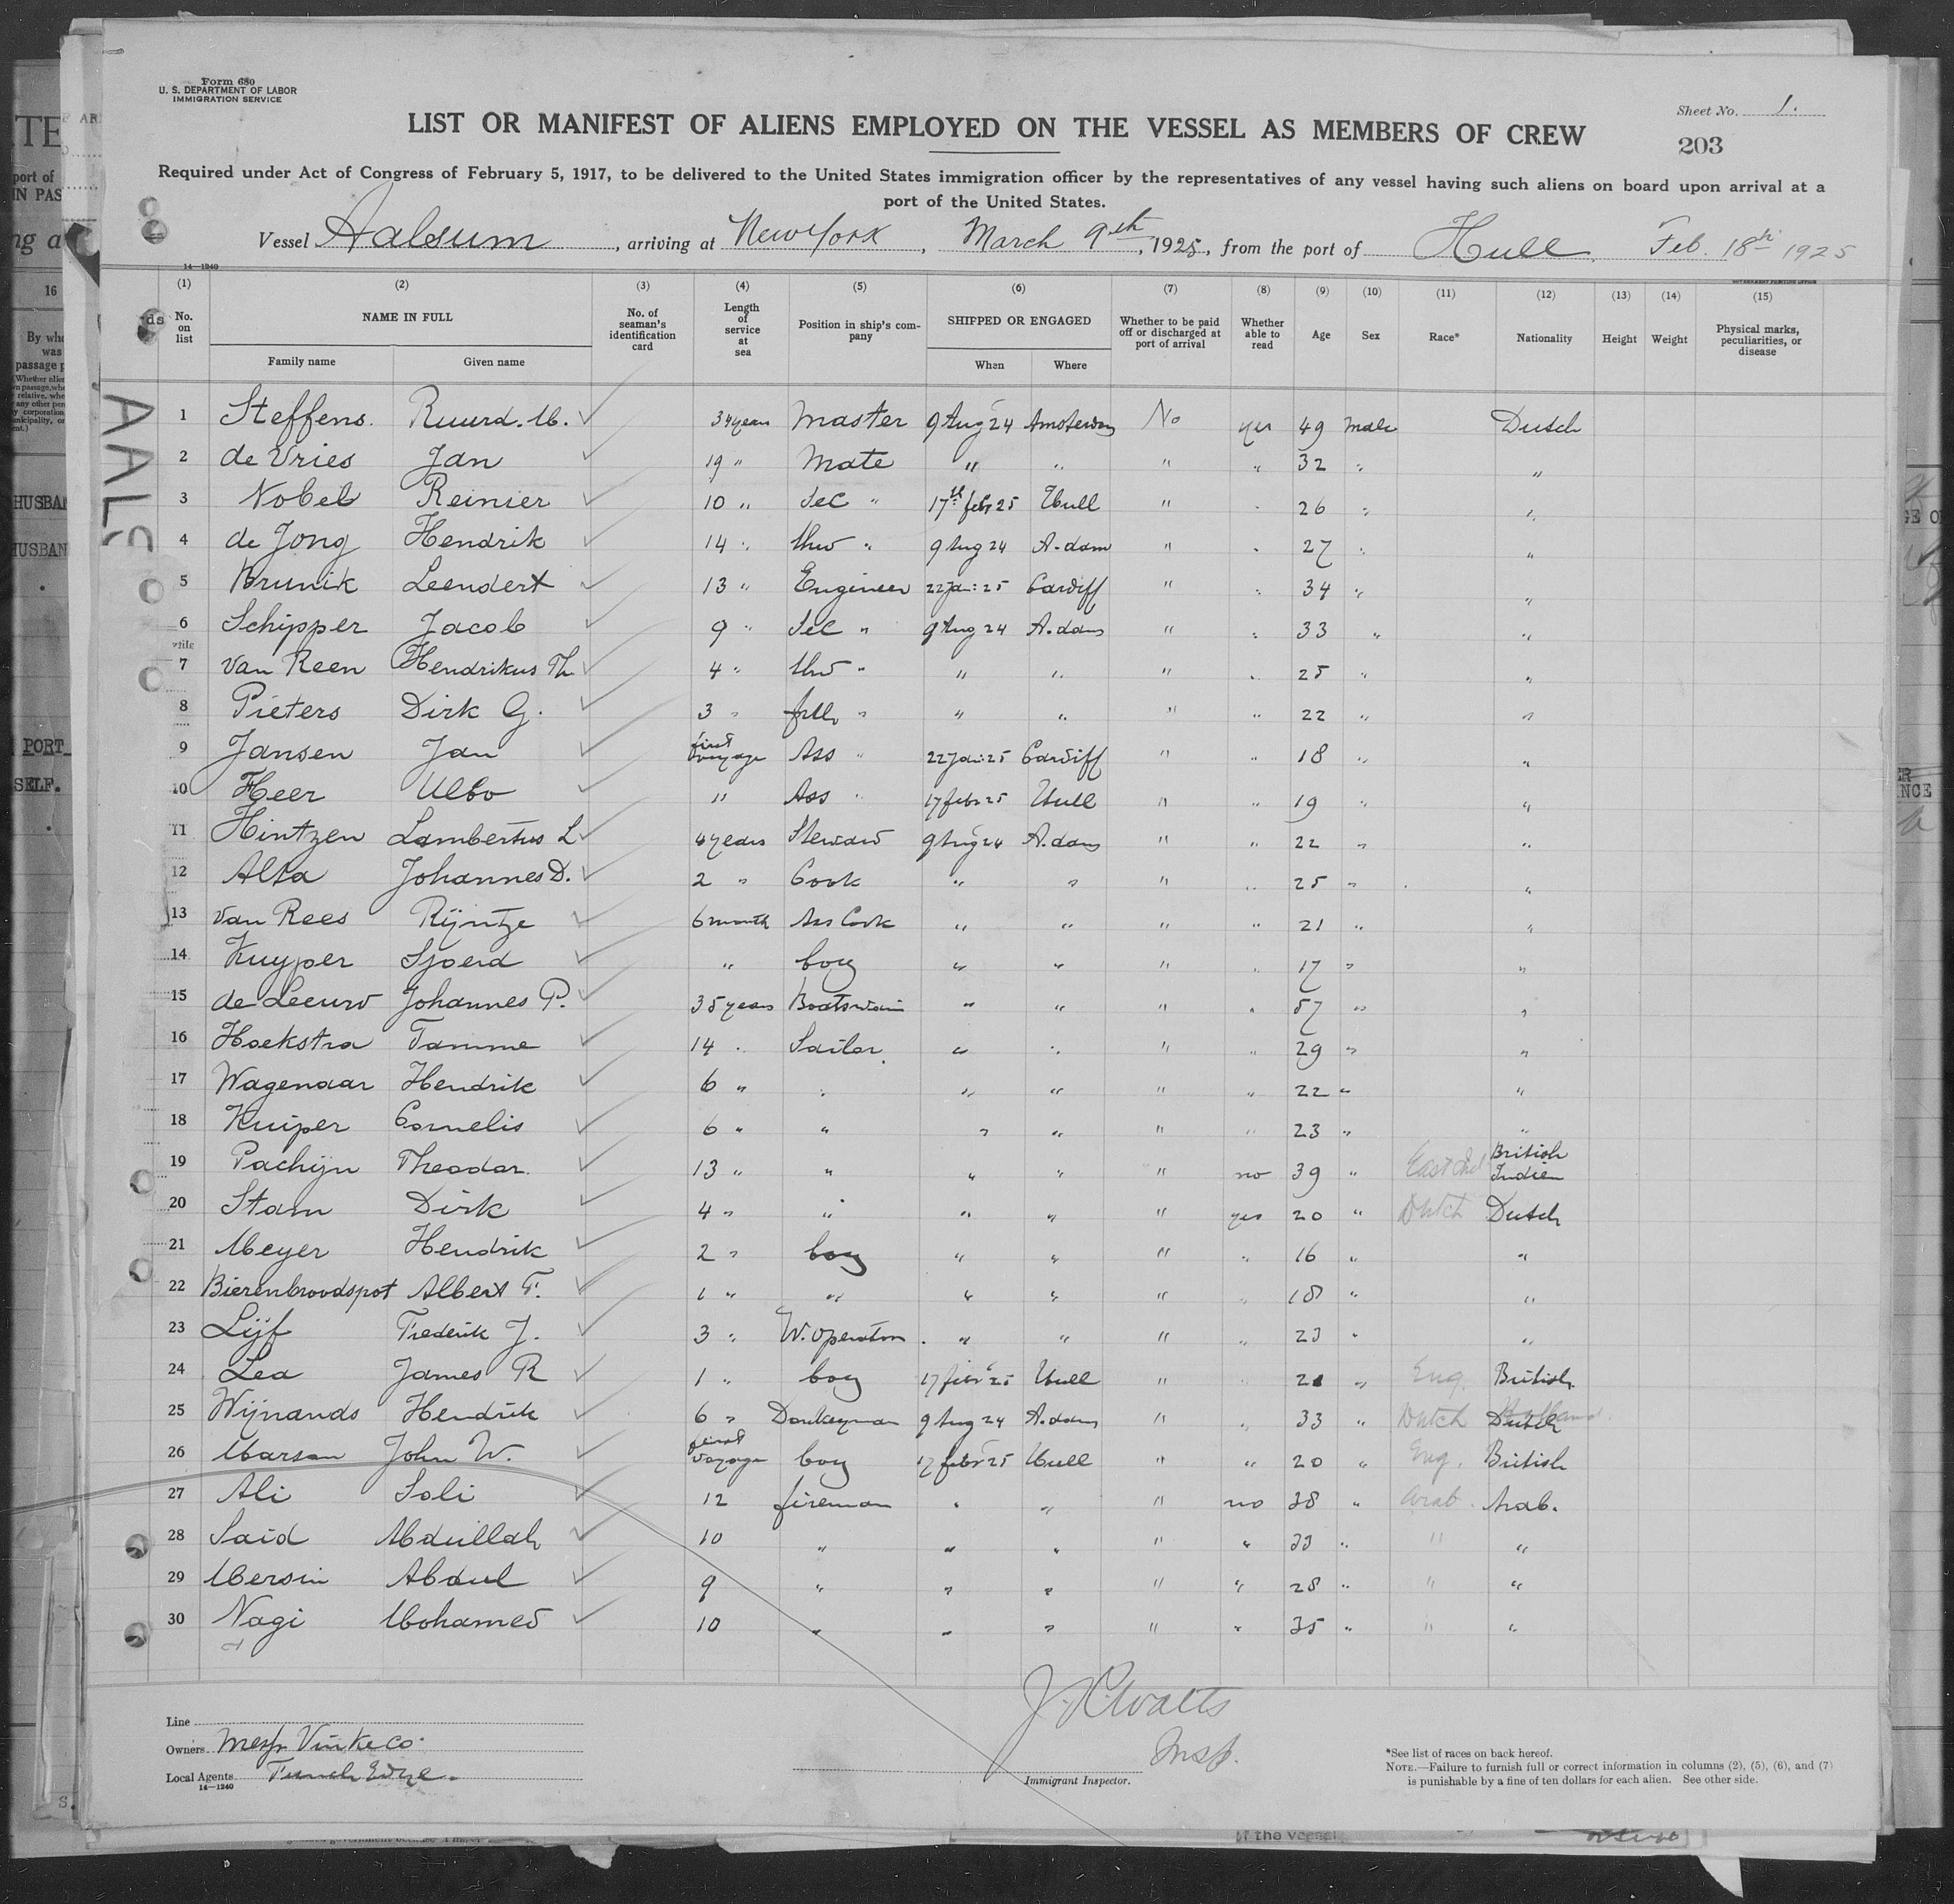 Form 680
U. S. DEPARTMENT OF LABOR
IMMIGRATION SERVICE
Sheet No. 1.
LIST OR MANIFEST OF ALIENS EMPLOYED ON THE VESSEL AS MEMBERS OF CREW
203
Required under Act of Congress of February 5, 1917, to be delivered to the United States immigration officer by the representatives of any vessel having such aliens on board upon arrival at a
port of the United States.
Vessel Aalsum, arriving at New York, March 9th, 1925, from the port of Hull, Feb. 18th 1925
14—1240
GOVERNMENT PRINTING OFFICE
(1) (2) (3) (4) (5) (6) (7) (8) (9) (10) (11) (12) (13) (14) (15)
No. on list NAME IN FULL No. of seaman's identification card Length of service at sea Position in ship's company SHIPPED OR ENGAGED Whether to be paid off or discharged at port of arrival Whether able to read Age Sex Race* Nationality Height Weight Physical marks, peculiarities, or disease
Family name Given name When Where
AALS
1 Steffens. Ruurd. M. 34 years Master 9 Aug 24 Amsterdam No yes 49 male Dutch
2 de Vries Jan 19 " Mate " " " " 32 " "
3 Nobel Reinier 10 " Sec " 17th febr 25 Hull " " 26 " "
4 de Jong Hendrik 14 " third " 9 Aug 24 A.dam " " 27 " "
5 Brunik Leendert 13 " Engineer 22 Jan: 25 Cardiff " " 34 " "
6 Schipper Jacob 9 " Sec " 9 Aug 24 A.dam " " 33 " "
7 van Reen Hendrikus Th. 4 " third " " " " " 25 " "
8 Pieters Dirk G. 3 " " " " " " 22 " "
9 Jansen Jan first voyage Ass " 22 Jan: 25 Cardiff " " 18 " "
10 Heer Ulbo " Ass " 17 febr 25 Hull " " 19 " "
11 Hintzen Lambertus L 4 years Steward 9 Aug 24 A.dam " " 22 " "
12 Alta Johannes D. 2 " Cook " " " " 25 " "
13 van Rees Rijntze 6 month Ass Cook " " " " 21 " "
14 Kuyper Sjoerd " boy " " " " 17 " "
15 de Leeuw Johannes P. 35 years Boatswain " " " " 57 " "
16 Hoekstra Tamme 14 " Sailor " " " " 29 " "
17 Wagenaar Hendrik 6 " " " " " " 22 " "
18 Kuiper Cornelis 6 " " " " " " 23 " "
19 Pachijn Theodor. 13 " " " " " no 39 " East Ind British Indien
20 Stam Dirk 4 " " " " " yes 20 " Dutch Dutch
21 Meyer Hendrik 2 " boy " " " " 16 " "
22 Bierenbroodspot Albert F. 1 " " " " " " 18 " "
23 Lijf Frederik J. 3 " W. operator " " " " 23 " "
24 Lea James R 1 " boy 17 febr 25 Hull " " 21 " Eng. British
25 Wijnands Hendrik 6 " Donkeyman 9 Aug 24 A.dam " " 33 " Dutch Dutch Holland
26 Marson John W. first voyage boy 17 febr 25 Hull " " 20 " Eng. British
27 Ali Soli 12 fireman " " " no 38 " Arab. Arab.
28 Said Abdullah 10 " " " " " 33 " " "
29 Mersin Abdul 9 " " " " " 28 " " "
30 Nagi Mohamed 10 " " " " " 35 " " "
Line
Owners Messrs Vinke Co.
Local Agents Funch Edye.
14—1240
J. P. Watts
Insp.
Immigrant Inspector.
*See list of races on back hereof.
NOTE.—Failure to furnish full or correct information in columns (2), (5), (6), and (7)
is punishable by a fine of ten dollars for each alien. See other side.